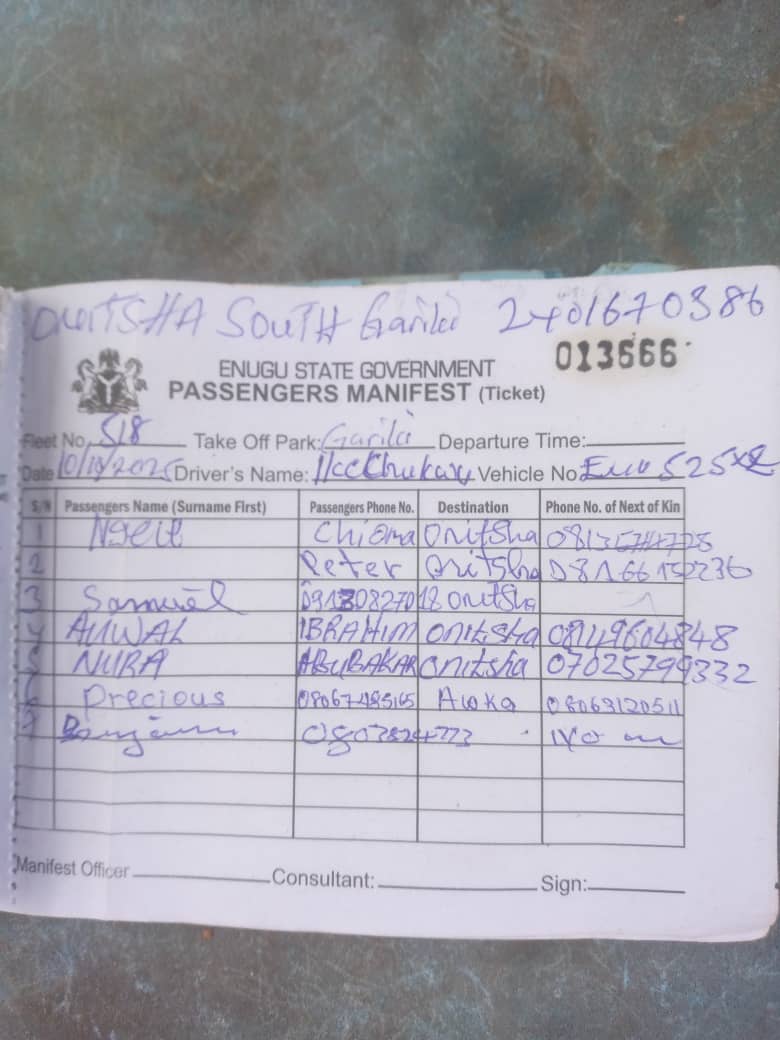 ONITSHA SOUTH Gariki 2401670386
013666
ENUGU STATE GOVERNMENT
PASSENGERS MANIFEST (Ticket)
Fleet No. 518 Take Off Park: Gariki Departure Time:
Date 10/10/2025 Driver's Name: Vehicle No
S/N Passengers Name (Surname First) Passengers Phone No. Destination Phone No. of Next of Kin
1 Chioma Onitsha
2 Peter Onitsha
3 Samuel Onitsha
4 AUWAL IBRAHIM Onitsha 08149604848
5 NURA ABUBAKAR Onitsha 07025799332
6 Precious 08067485165 Awka 08063120511
7
Manifest Officer Consultant: Sign: